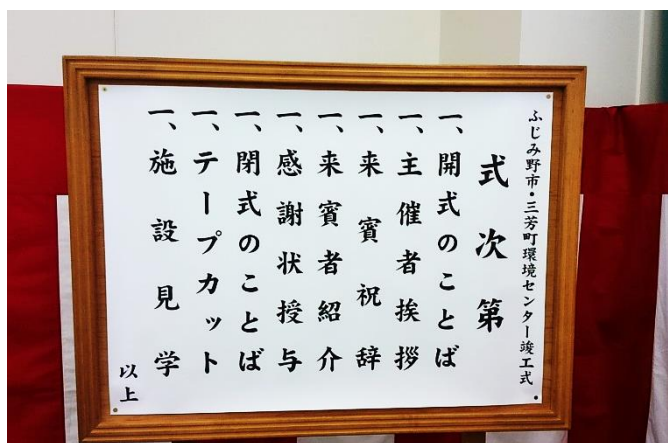 ふじみ野市・三芳町環境センター竣工式
式次第
一、開式のことば
一、主催者挨拶
一、来賓祝辞
一、来賓者紹介
一、感謝状授与
一、閉式のことば
一、テープカット
一、施設見学
以上